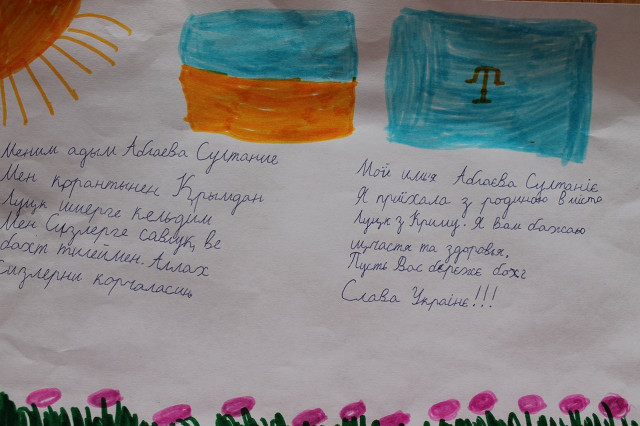 Меним адым Абгаева Султание
Мен қорантынен Қрымдан
Луцк шиерге кельдим
Мен Сизлерге савлук, ве
бахт тилеймен. Аллах
Сизлерни корчаласиң
Мой имия Абгаєва Султаніє
Я приїхала з родиною в місто
Луцк з Криму. Я Вам бажаю
щчастя та здоровья.
Пусть Вас береже бохг
Слава Украіне!!!